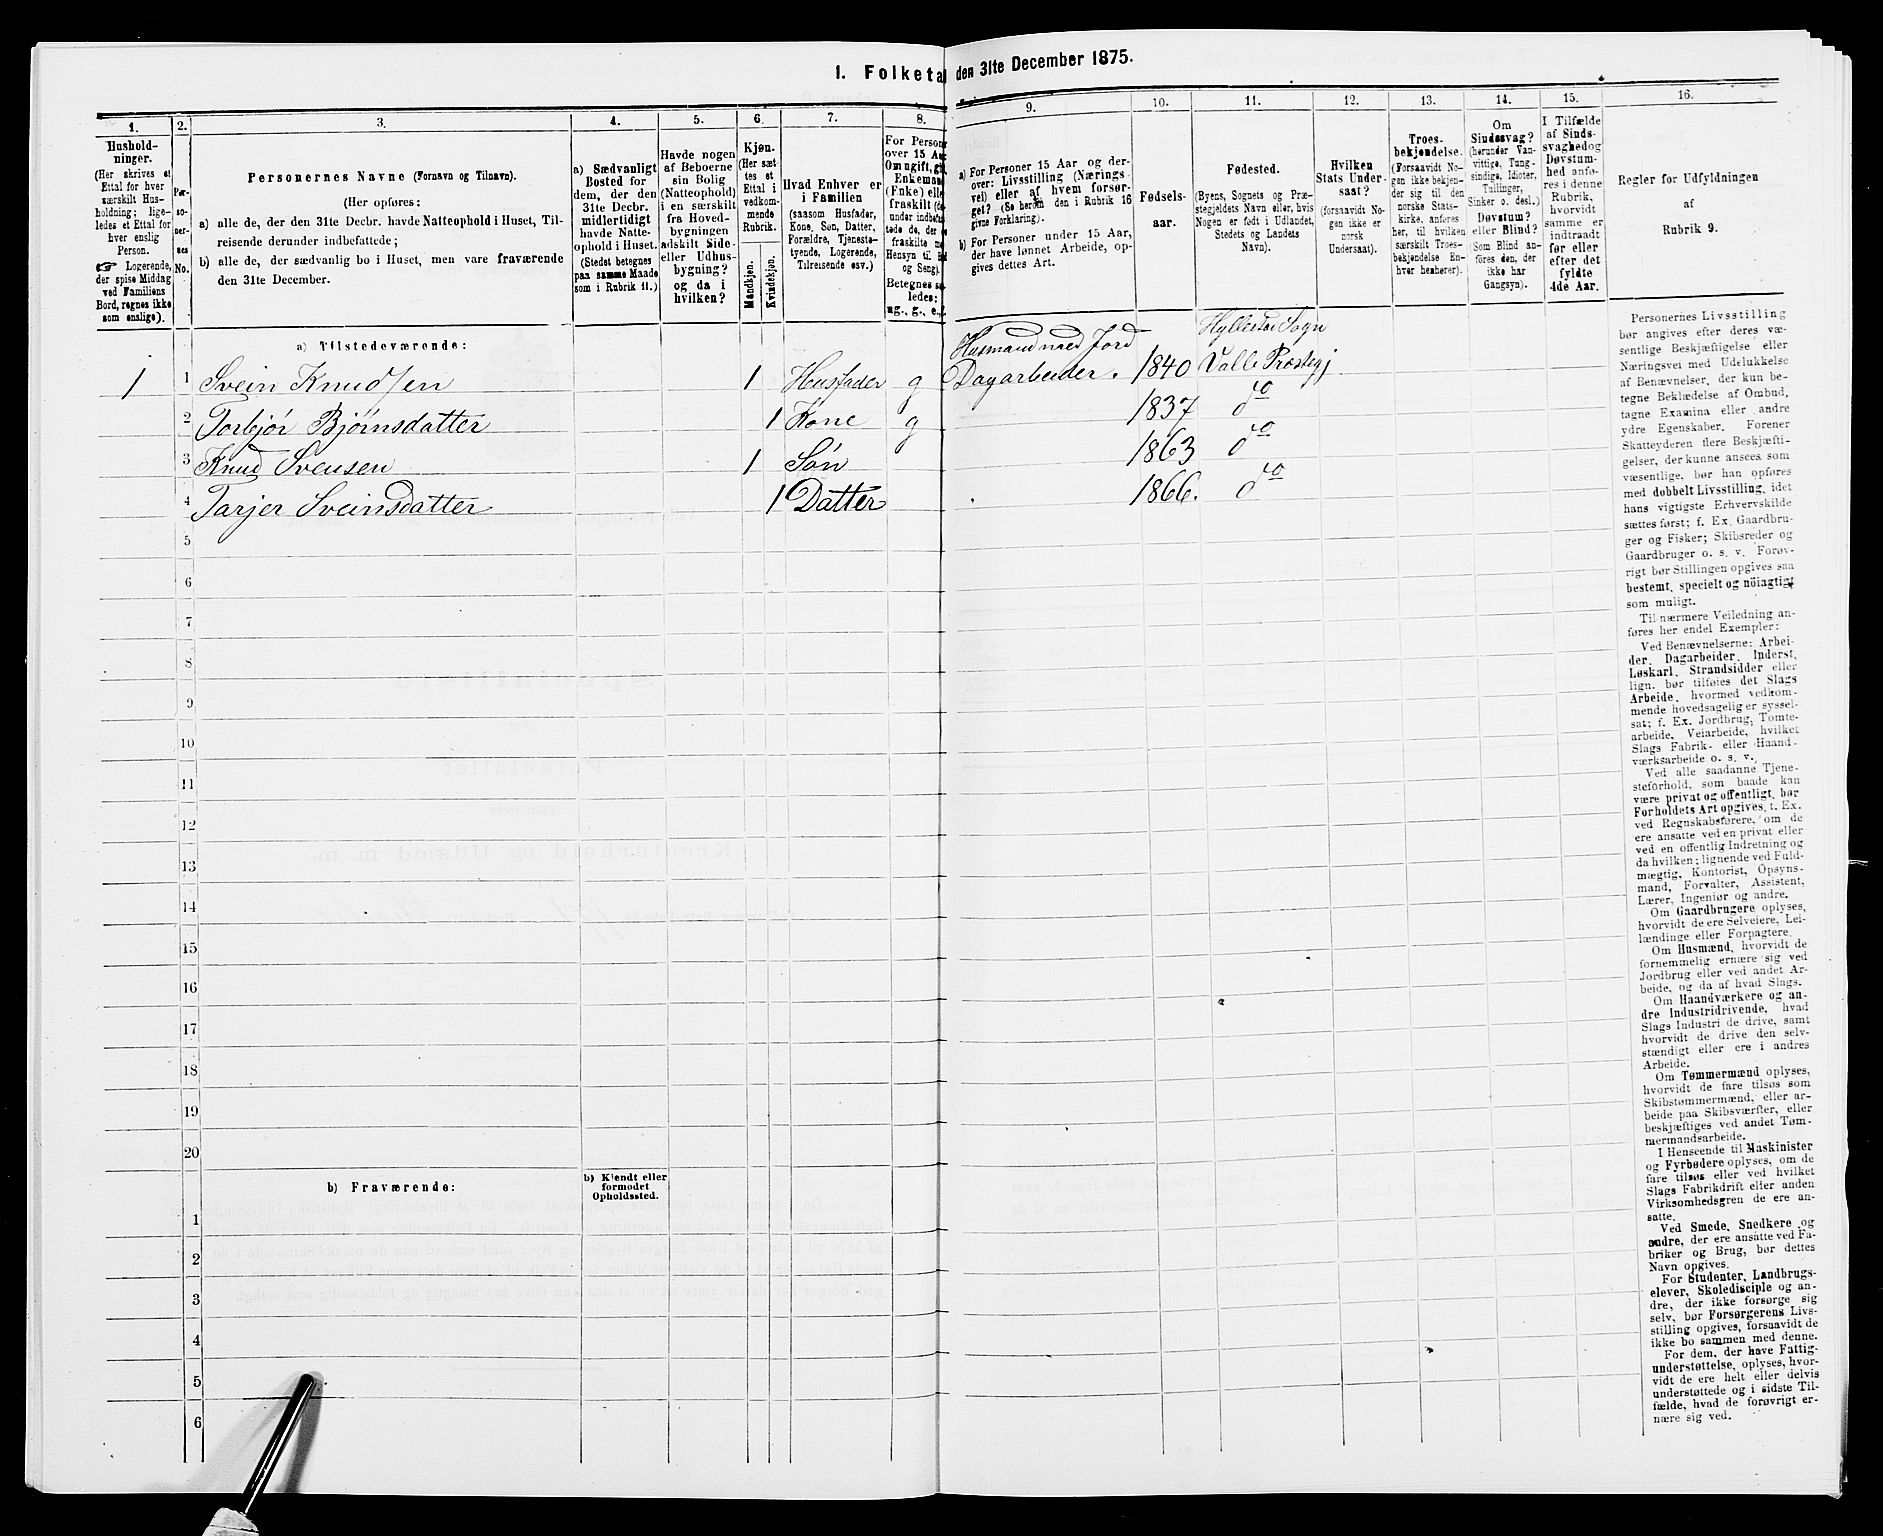 I. Folketal den 31te December 1875.
1.
2.
3.
4.
5.
6.
7.
8.
9.
10.
11.
12.
13.
14.
15.
16.
Husholdninger.
(Her skrives et
Ettal for hver
særskilt Husholdning;
ligeledes et Ettal for
hver enslig
Person.
☞ Logerende,
der spise Middag
ved Familiens
Bord, regnes ikke
som enslige).
Personernes No.
Personernes Navne (Fornavn og Tilnavn).
(Her opføres:
a) alle de, der den 31te Decbr. havde Natteophold i Huset, Tilreisende derunder indbefattede;
b) alle de, der sædvanlig bo i Huset, men vare fraværende
den 31te December.
a) Sædvanligt
Bosted for
dem, der den
31te Decbr.
midlertidigt
havde Natteophold
i Huset.
(Stedet betegnes
paa samme Maade
som i Rubrik 11.)
Havde nogen
af Beboerne
sin Bolig
(Natteophold)
i en særskilt
fra Hovedbygningen
adskilt Side-
eller Udhusbygning?
og da i
hvilken?
Kjøn.
(Her sættes
et
Ettal i
vedkommende
Rubrik.
Mandkjøn.
Kvindekjøn.
Hvad Enhver er
i Familien
(saasom Husfader,
Kone, Søn, Datter,
Forældre, Tjenestetyende,
Logerende,
Tilreisende osv.)
For Personer
over 15 Aar:
Om ugift, gift,
Enkemand
(Enke) eller
fraskilt
Betegnes saaledes:
ug., g., e.,
a) For Personer 15 Aar og derover:
Livsstilling (Næringsvei)
eller af hvem forsørget?
(Se herom den i Rubrik 16
givne Forklaring).
b) For Personer under 15 Aar,
der have lønnet Arbeide, opgives
dettes Art.
Fødselsaar.
Fødested.
(Byens, Sognets og Præstegjeldets
Navn eller, hvis
Nogen er født i Udlandet,
Stedets og Landets
Navn).
Hvilken
Stats Undersaat?
(forsaavidt Nogen
ikke er
norsk
Undersaat).
Troesbekjendelse.
(Forsaavidt Nogen
ikke bekjender
sig til den
norske Statskirke,
anføres
her, til hvilken
særskilt Troesbekjendelse
Enhver
henhører).
Om
Sindssvag?
(herunder Vanvittige,
Tungsindige,
Idioter,
Tullinger,
Sinker o. desl.)
Døvstum?
eller Blind?
(Som Blind anføres
den, der
ikke har
Gangsyn).
I Tilfælde
af Sindssvaghed
og
Døvstumhed
anføres
i denne
Rubrik,
hvorvidt
samme er
indtraadt
før eller
efter det
fyldte
4de Aar.
Regler for Udfyldningen
af
Rubrik 9.
a) Tilstedeværende:
1 1 Svein Knudsen 1 Husfader g Husmand med Jord Dagarbeider. 1840 Hyllestad Sogn Valle Præstegj
2 Torbjør Bjørnsdatter 1 Kone g 1837 do
3 Knud Svensen 1 Søn 1863 do
4 Tarjer Sveinsdatter 1 Datter 1866. do
5
6
7
8
9
10
11
12
13
14
15
16
17
18
19
20
b) Fraværende:
b) Kjendt eller
formodet
Opholdssted.
1
2
3
4
5
6
Personernes Livsstilling
bør angives efter deres væsentlige
Beskjæftigelse eller
Næringsvei med Udelukkelse
af Benævnelser, der kun betegne
Beklædelse af Ombud,
tagne Examina eller andre
ydre Egenskaber. Forener
Skatteyderen flere Beskjæftigelser,
der kunne ansees som
væsentlige, bør han opføres
med dobbelt Livsstilling, idet
hans vigtigste Erhvervskilde
sættes først; f. Ex. Gaardbruger
og Fisker; Skibsreder og
Gaardbruger o. s. v. Forøvrigt
bør Stillingen opgives saa
bestemt, specielt og nøiagtigt
som muligt.
Til nærmere Veiledning anføres
her endel Exempler:
Ved Benævnelserne: Arbeider,
Dagarbeider, Inderst,
Løskarl, Strandsidder eller
lign. bør tilføies det Slags
Arbeide, hvormed vedkommende
hovedsagelig er sysselsat;
f. Ex. Jordbrug, Tomtearbeide,
Veiarbeide, hvilket
Slags Fabrik- eller Haandværksarbeide
o. s. v.
Ved alle saadanne Tjenesteforhold,
som baade kan
være privat og offentligt, bør
Forholdets Art opgives, t. Ex.
ved Regnskabsførere, om de
ere ansatte ved en privat eller
ved en offentlig Indretning og
da hvilken; lignende ved Fuldmægtig,
Kontorist, Opsynsmand,
Forvalter, Assistent,
Lærer, Ingeniør og andre.
Om Gaardbrugere oplyses,
hvorvidt de ere Selveiere, Leilændinge
eller Forpagtere.
Om Husmænd, hvorvidt de
fornemmelig ernære sig ved
Jordbrug eller ved andet Arbeide,
og da af hvad Slags.
Om Haandværkere og andre
Industridrivende, hvad
Slags Industri de drive, samt
hvorvidt de drive den selvstændigt
eller ere i andres
Arbeide.
Om Tømmermænd oplyses,
hvorvidt de fare tilsøs som
Skibstømmermænd, eller arbeide
paa Skibsværfter, eller
beskjæftiges ved andet Tømmermandsarbeide.
I Henseende til Maskinister
og Fyrbødere oplyses, om de
fare tilsøs eller ved hvilket
Slags Fabrikdrift eller anden
Virksomhedsgren de ere ansatte.
Ved Smede, Snedkere og
andre, der ere ansatte ved Fabriker
og Brug, bør dettes
Navn opgives.
For Studenter, Landbrugselever,
Skoledisciple og andre,
der ikke forsørge sig
selv, bør Forsørgerens Livsstilling
opgives, forsaavidt de
ikke bo sammen med denne.
For dem, der have Fattigunderstøttelse,
oplyses, hvorvidt
de ere helt eller delvis
understøttede og i sidste Tilfælde,
hvad de forøvrigt ernære
sig ved.